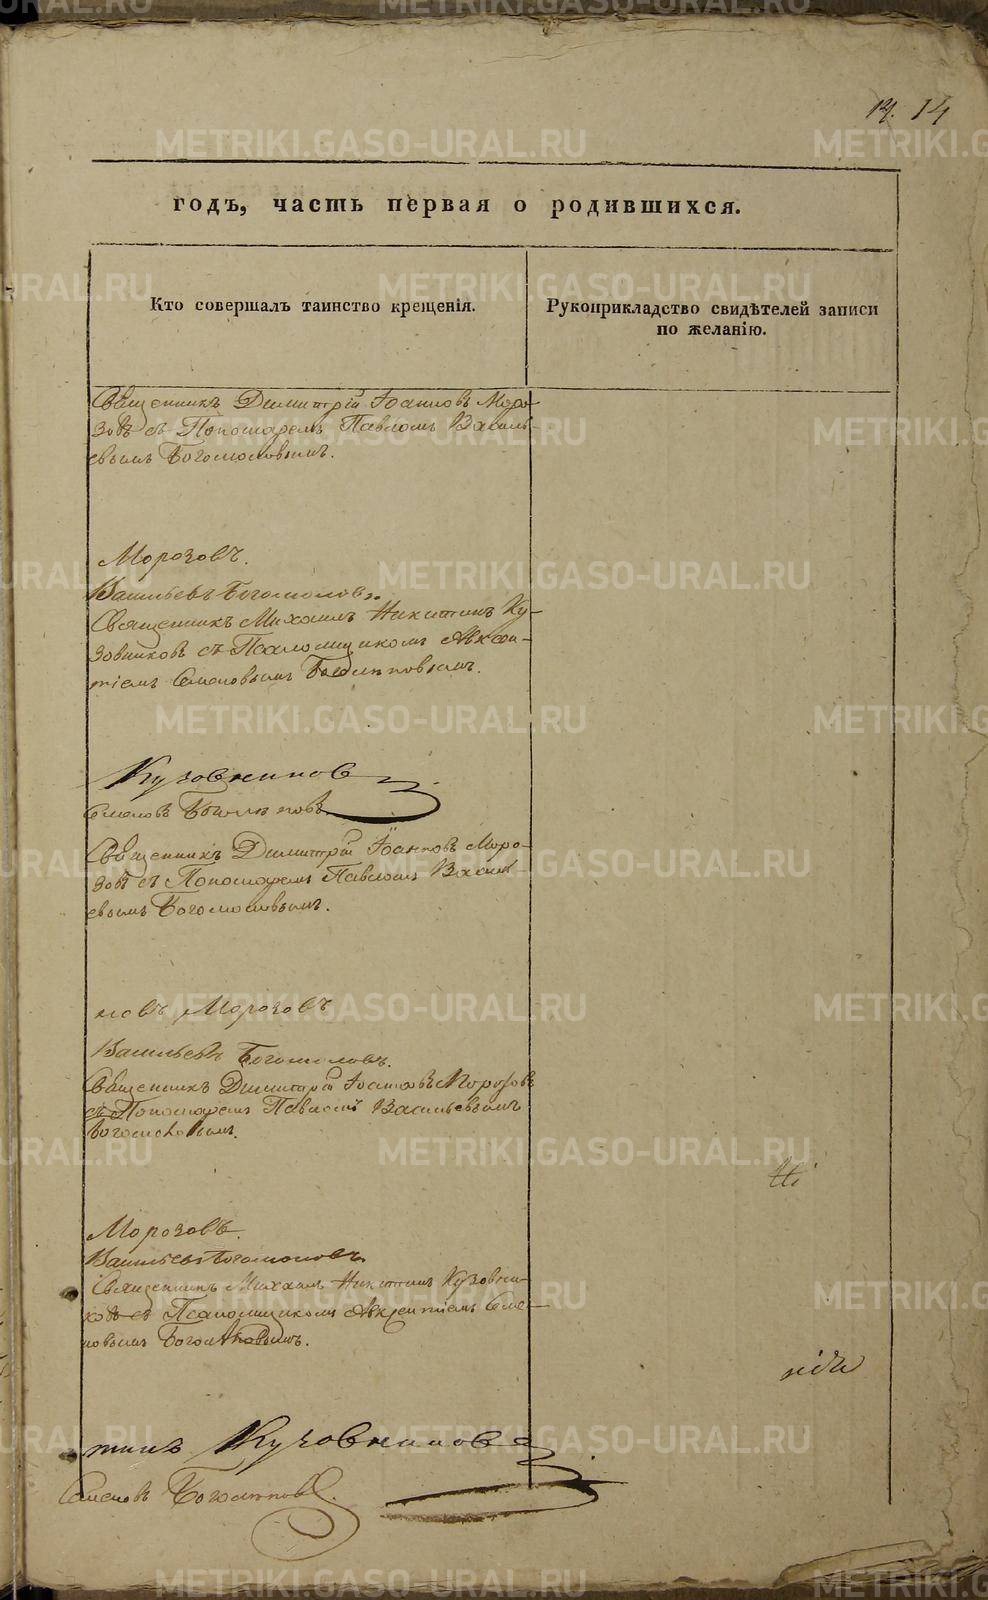 14. 14
годъ, часть первая о родившихся.
Кто совершалъ таинство крещенія.
Рукоприкладство свидѣтелей записи
по желанію.
Священникъ Димитрій Іоанновъ Моро-
зовъ съ Пономаремъ Павломъ Василь-
евымъ Богомоловымъ.
Морозовъ.
Васильевъ Богомоловъ.
Священникъ Михаилъ Никитинъ Ку-
зовниковъ съ Псаломщикомъ Авксен-
тіемъ Семеновымъ
Кузовниковъ
Семеновъ
Священникъ Димитрій Іоанновъ Моро-
зовъ съ Пономаремъ Павломъ Василь
евымъ Богомоловымъ.
новъ Морозовъ
Васильевъ Богомоловъ.
Священникъ Димитрій Іоанновъ Морозовъ
съ Пономаремъ Павломъ Васильевымъ
Богомоловымъ.
Морозовъ.
Васильевъ Богомоловъ.
Священникъ Михаилъ Никитинъ Кузовни-
ковъ съ Псаломщикомъ Авксентіемъ Семе-
новымъ
тинъ Кузовниковъ
Семеновъ
METRIKI.GASO-URAL.RU